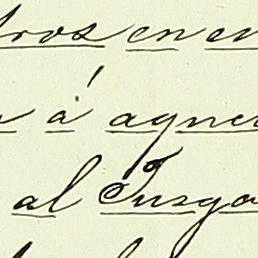 tros en en
á aque
al Juzga